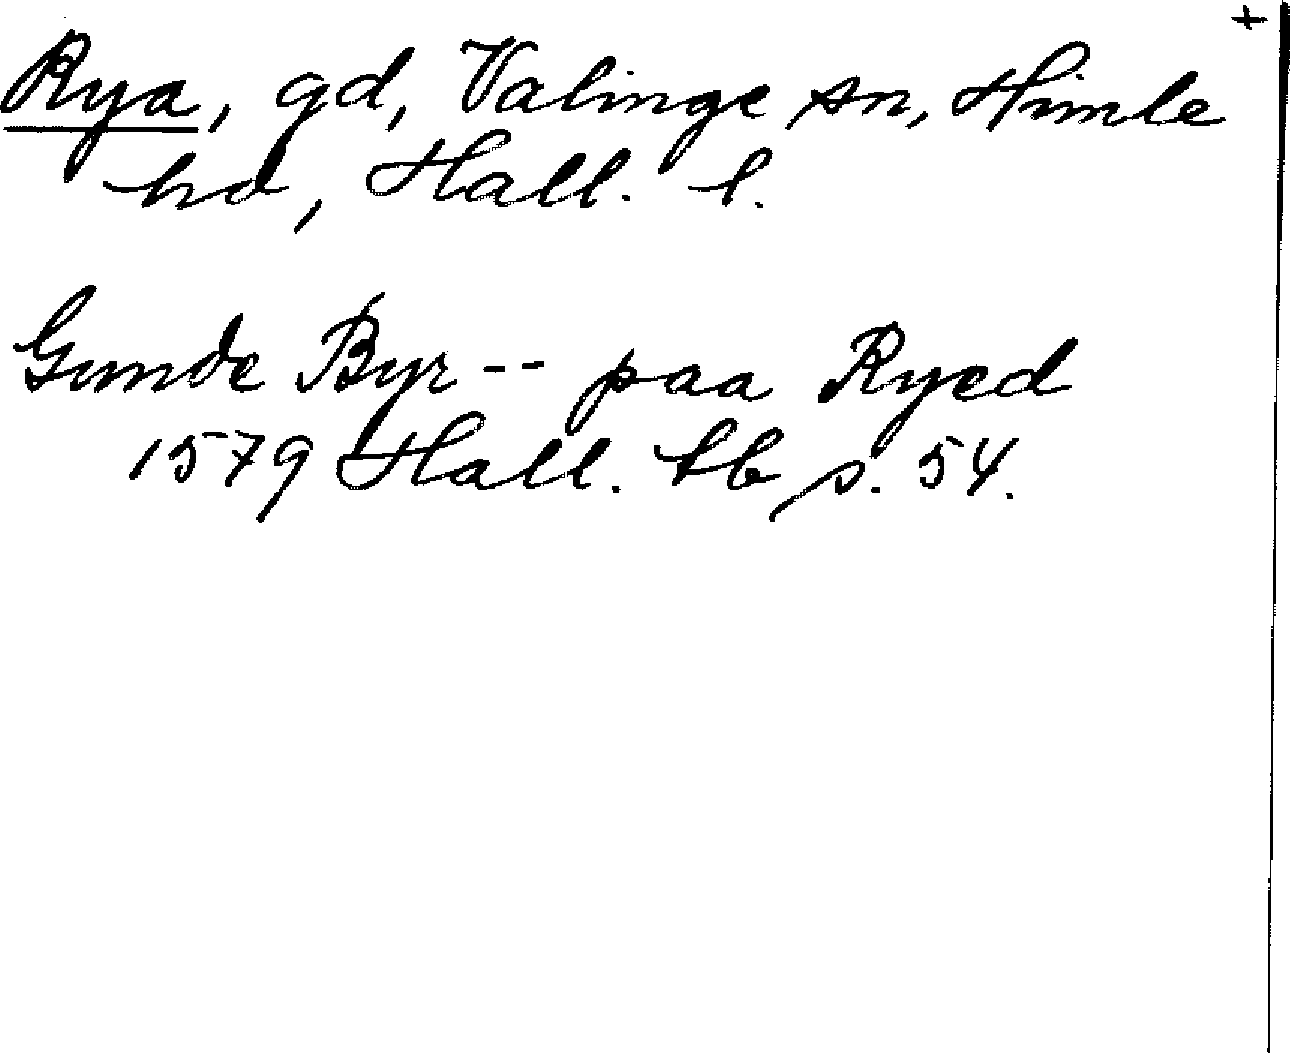 +
Rya, gd, Valinge sn, Himle
hd, Hall. l.
Gunde Byr -- paa Ryed
1579 Hall. tb s. 54.